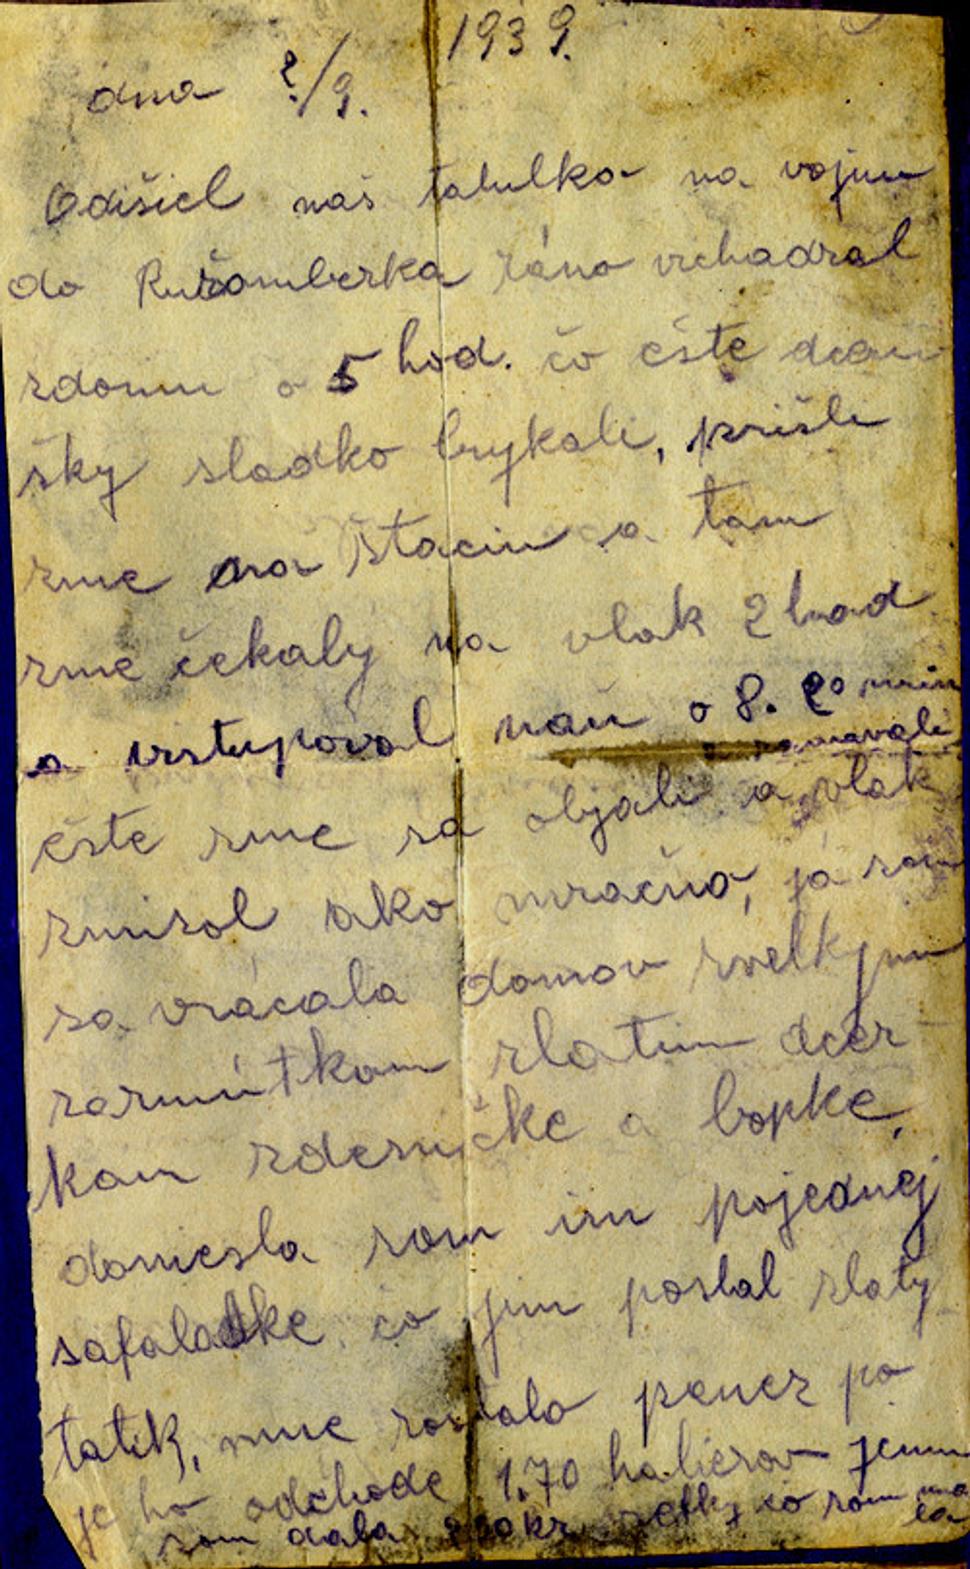 1939.
dna 2/9.
Odišiel náš tatulko na vojnu
do Ružomberka ráno vichadzal
zdomu o 5 hod. čo ešte
sky sladko brykali, prišli
zme na štaciu a tam
zme čekaly na vlak 2 hod
a vrstupoval naň o 8. 20 min
ešte sme sa objali a vlak
zmizol ako mračno, já som
sa vrácala domov zvelkjm
zarmútkom zlatim dcer
kam zdeničke a bopke,
doniesla som im pojednej
safaladke čo jim poslal zlaty
tatik, mne zostalo penez po
jeho odchode 1.70 halierov jemu
som dala kr. čo som ma
la